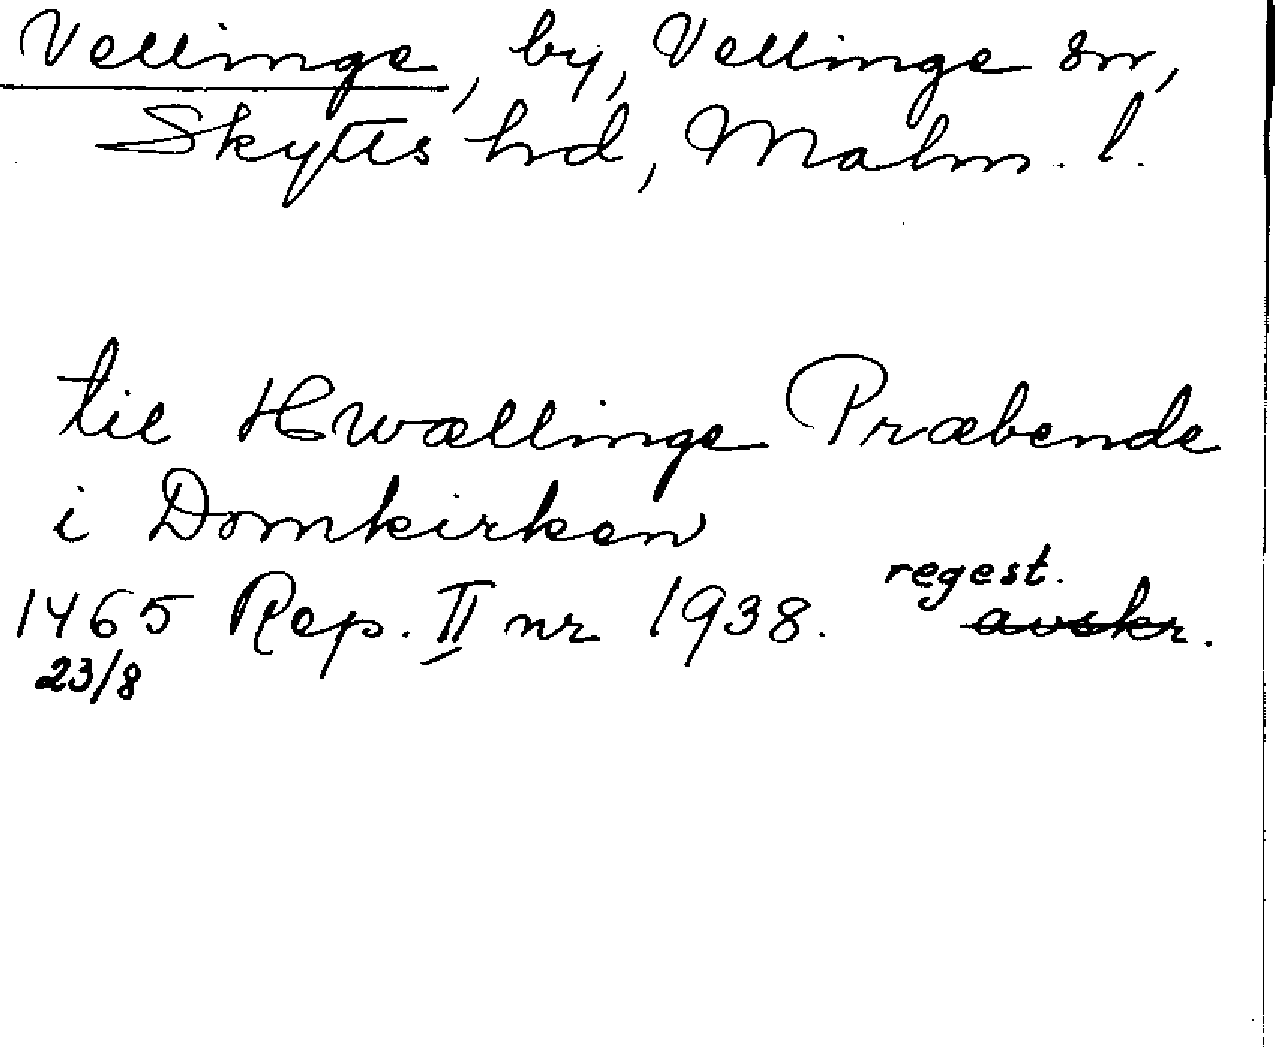 Vellinge, by, Vellinge sn,
Skytts hd, Malm. l.
til Hwællinge Præbende
i Domkirken
regest.
1465 Rep. II nr 1938. avskr.
23/8